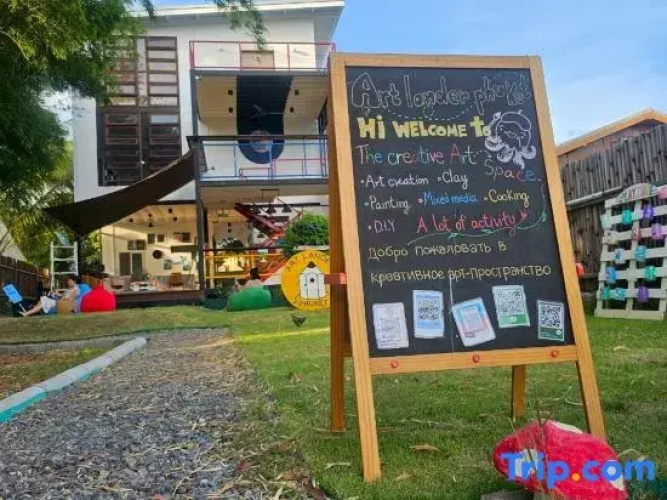 Art lander phuket
Hi WELCOME to
The creative Art
Space.
• Art creation • Clay
• Painting • Mixed media • Cooking
• D.I.Y A lot of activity
добро пожаловать в
креативное арт-пространство
ART LANDER
PHUKET
Trip.com